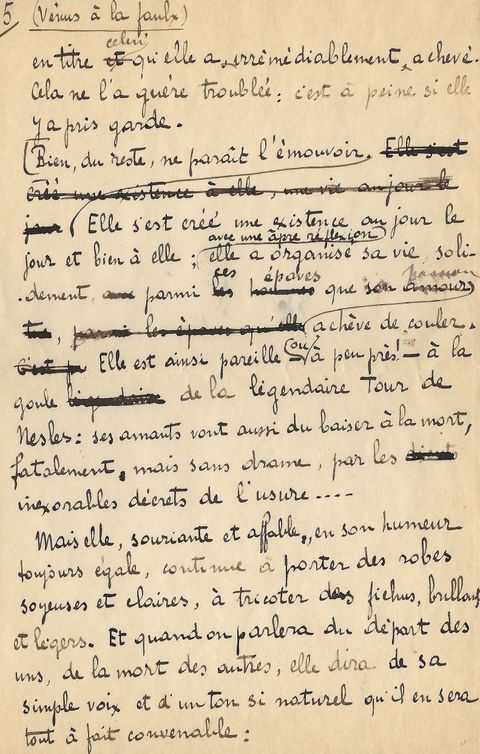 5 (Vénus à la faulx)
celui
en titre et qu'elle a, irrémédiablement, achevé.
Cela ne l'a guère troublée : c'est à peine si elle
y a pris garde.
(Bien, du reste, ne paraît l'émouvoir. Elle s'est
créé une existence à elle, une vie au jour le
jour (Elle s'est créé une existence au jour le
jour et bien à elle ; avec une âpre réflexion elle a organisé sa vie, soli-
dement, parmi ces épaves que son amour
parmi les épaves qu'elle achève de couler.
C'est Elle est ainsi pareille (ou à peu près! — à la
goule légendaire de la légendaire Tour de
Nesles : ses amants vont aussi du baiser à la mort,
fatalement, mais sans drame, par les
inexorables décrets de l'usure ----
Mais elle, souriante et affable, en son humeur
toujours égale, continue à porter des robes
soyeuses et claires, à tricoter des fichus, brillants
et légers. Et quand on parlera du départ des
uns, de la mort des autres, elle dira de sa
simple voix et d'un ton si naturel qu'il en sera
tout à fait convenable :